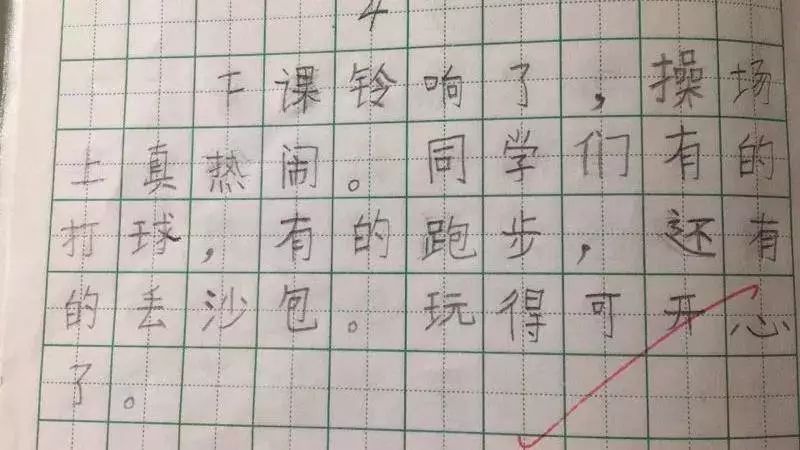 4
下课铃响了,操场
上真热闹。同学们有的
打球,有的跑步,还有
的丢沙包。玩得可开心
了。